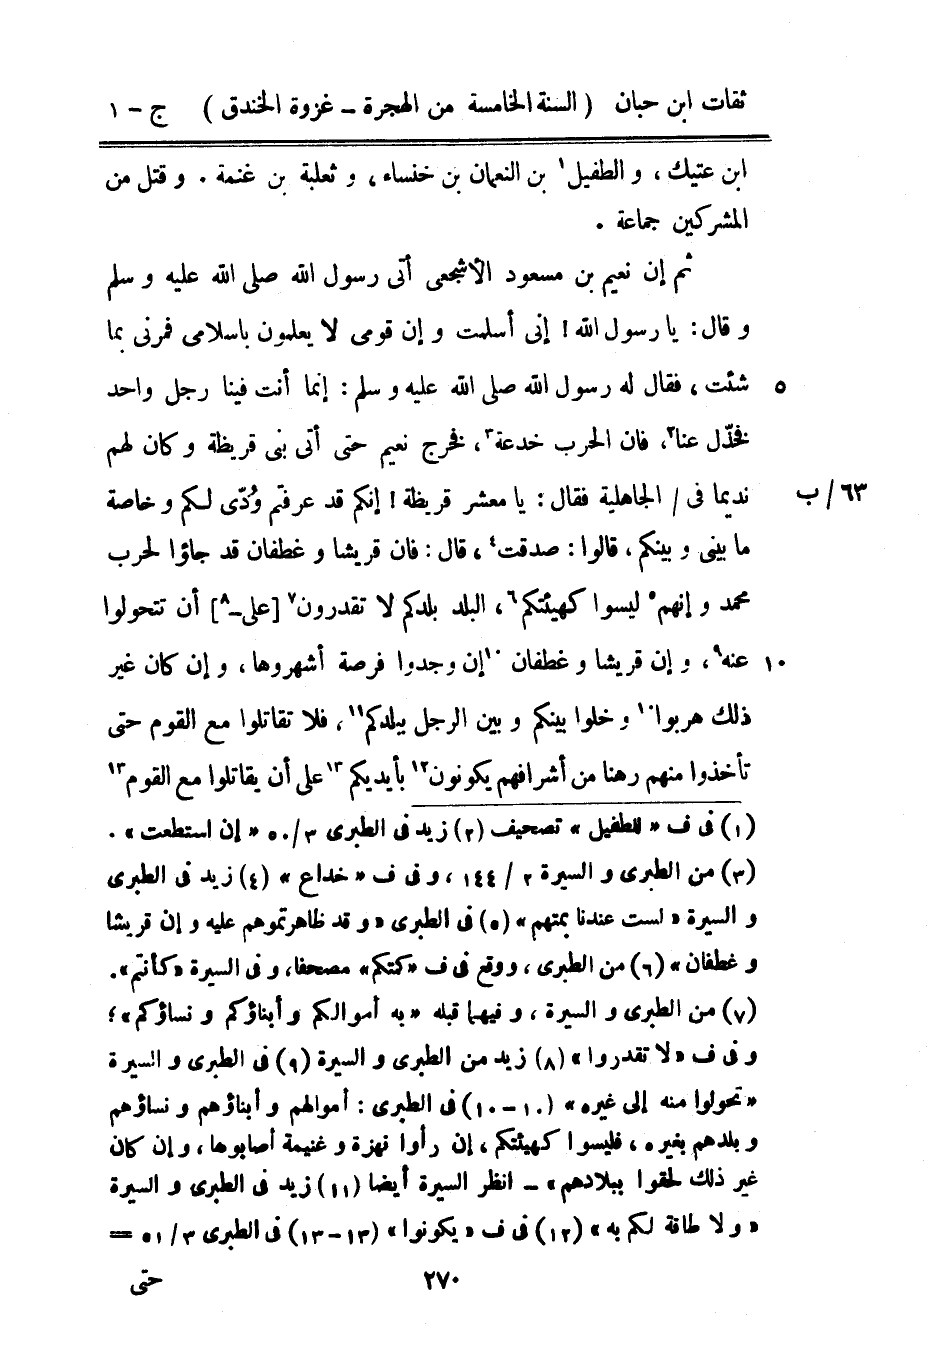 ثقات ابن حبان ( السنة الخامسة من الهجرة ــ غزوة الخندق ) ج - ١
ابن عتيك ، و الطفيل١ بن النعمان بن خنساء ، و ثعلبة بن غنمة . و قتل من
المشركين جماعة .
ثم إن نعيم بن مسعود الأشجعى أتى رسول الله صلى الله عليه و سلم
و قال : يا رسول الله ! إنى أسلمت و إن قومى لا يعلمون باسلامى فمرنى بما
شئت ، فقال له رسول الله صلى الله عليه و سلم : إنما أنت فينا رجل واحد ٥
فخذّل عنا٢، فان الحرب خدعة٣، فخرج نعيم حتى أتى بنى قريظة و كان لهم
نديما فى / الجاهلية فقال : يا معشر قريظة ! إنكم قد عرفتم وُدّى لكم و خاصة ٦٣/ ب
ما بينى و بينكم ، قالوا : صدقت٤ ، قال : فان قريشا و غطفان قد جاؤا لحرب
محمد و إنهم٥ ليسوا كهيئتكم٦، البلد بلدكم لا تقدرون٧ [على-٨] أن تتحولوا
عنه٩، و إن قريشا و غطفان ١٠إن وجدوا فرصة أشهروها ، و إن كان غير ١٠
ذلك هربوا١٠ و خلوا بينكم و بين الرجل ببلدكم١١، فلا تقاتلوا مع القوم حتى
تأخذوا منهم رهنا من أشرافهم يكونون١٢ بأيديكم ١٣على أن يقاتلوا مع القوم١٣
(١) فى ف « للطفيل » تصحيف (٢) زيد فى الطبرى ٣/ ٥٠ « إن استطعت » .
(٣) من الطبرى و السيرة ٢ / ١٤٤ ، و فى ف « خداع » (٤) زيد فى الطبرى
و السيرة « لست عندنا بمتهم » (٥) فى الطبرى « و قد ظاهرتموهم عليه و إن قريشا
و غطفان » (٦) من الطبرى ، ووقع فى ف «كتكم» مصحفا، و فى السيرة «كأنتم».
(٧) من الطبرى و السيرة ، و فيهما قبله « به أموالكم و أبناؤكم و نساؤكم » ؛
و فى ف « لا تقدروا » (٨) زيد من الطبرى و السيرة (٩) فى الطبرى و السيرة
« تحولوا منه إلى غيره » (١٠-١٠) فى الطبرى : أموالهم و أبناؤهم و نساؤهم
و بلدهم بغيره ، فليسوا كهيئتكم ، إن رأوا نهزة و غنيمة أصابوها ، و إن كان
غير ذلك لحقوا ببلادهم » ــ انظر السيرة أيضا (١١) زيد فى الطبرى و السيرة
« و لا طاقة لكم به » (١٢) فى ف « يكونوا » (١٣-١٣) فى الطبرى ٣/ ٥١ =
٢٧٠ حتى